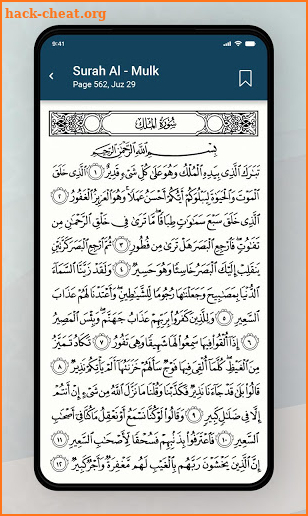 hack-cheat.org
9:41
Surah Al - Mulk
Page 562, Juz 29
سُورَةُ المُلْكِ
بِسْمِ اللَّهِ الرَّحْمَٰنِ الرَّحِيمِ
تَبَٰرَكَ الَّذِي بِيَدِهِ الْمُلْكُ وَهُوَ عَلَىٰ كُلِّ شَيْءٍ قَدِيرٌ ١ الَّذِي خَلَقَ
الْمَوْتَ وَالْحَيَوٰةَ لِيَبْلُوَكُمْ أَيُّكُمْ أَحْسَنُ عَمَلًا وَهُوَ الْعَزِيزُ الْغَفُورُ ٢
الَّذِي خَلَقَ سَبْعَ سَمَٰوَٰتٍ طِبَاقًا مَّا تَرَىٰ فِي خَلْقِ الرَّحْمَٰنِ مِن
تَفَٰوُتٍ فَارْجِعِ الْبَصَرَ هَلْ تَرَىٰ مِن فُطُورٍ ٣ ثُمَّ ارْجِعِ الْبَصَرَ كَرَّتَيْنِ
يَنقَلِبْ إِلَيْكَ الْبَصَرُ خَاسِئًا وَهُوَ حَسِيرٌ ٤ وَلَقَدْ زَيَّنَّا السَّمَآءَ
الدُّنْيَا بِمَصَٰبِيحَ وَجَعَلْنَٰهَا رُجُومًا لِّلشَّيَٰطِينِ وَأَعْتَدْنَا لَهُمْ عَذَابَ
السَّعِيرِ ٥ وَلِلَّذِينَ كَفَرُوا بِرَبِّهِمْ عَذَابُ جَهَنَّمَ وَبِئْسَ الْمَصِيرُ
٦ إِذَآ أُلْقُوا فِيهَا سَمِعُوا لَهَا شَهِيقًا وَهِيَ تَفُورُ ٧ تَكَادُ تَمَيَّزُ
مِنَ الْغَيْظِ كُلَّمَآ أُلْقِيَ فِيهَا فَوْجٌ سَأَلَهُمْ خَزَنَتُهَآ أَلَمْ يَأْتِكُمْ نَذِيرٌ ٨
قَالُوا بَلَىٰ قَدْ جَآءَنَا نَذِيرٌ فَكَذَّبْنَا وَقُلْنَا مَا نَزَّلَ اللَّهُ مِن شَيْءٍ إِنْ أَنتُمْ
إِلَّا فِي ضَلَٰلٍ كَبِيرٍ ٩ وَقَالُوا لَوْ كُنَّا نَسْمَعُ أَوْ نَعْقِلُ مَا كُنَّا فِيٓ أَصْحَٰبِ
السَّعِيرِ ١٠ فَاعْتَرَفُوا بِذَنۢبِهِمْ فَسُحْقًا لِّأَصْحَٰبِ السَّعِيرِ ١١
إِنَّ الَّذِينَ يَخْشَوْنَ رَبَّهُم بِالْغَيْبِ لَهُم مَّغْفِرَةٌ وَأَجْرٌ كَبِيرٌ ١٢
hack-cheat.org